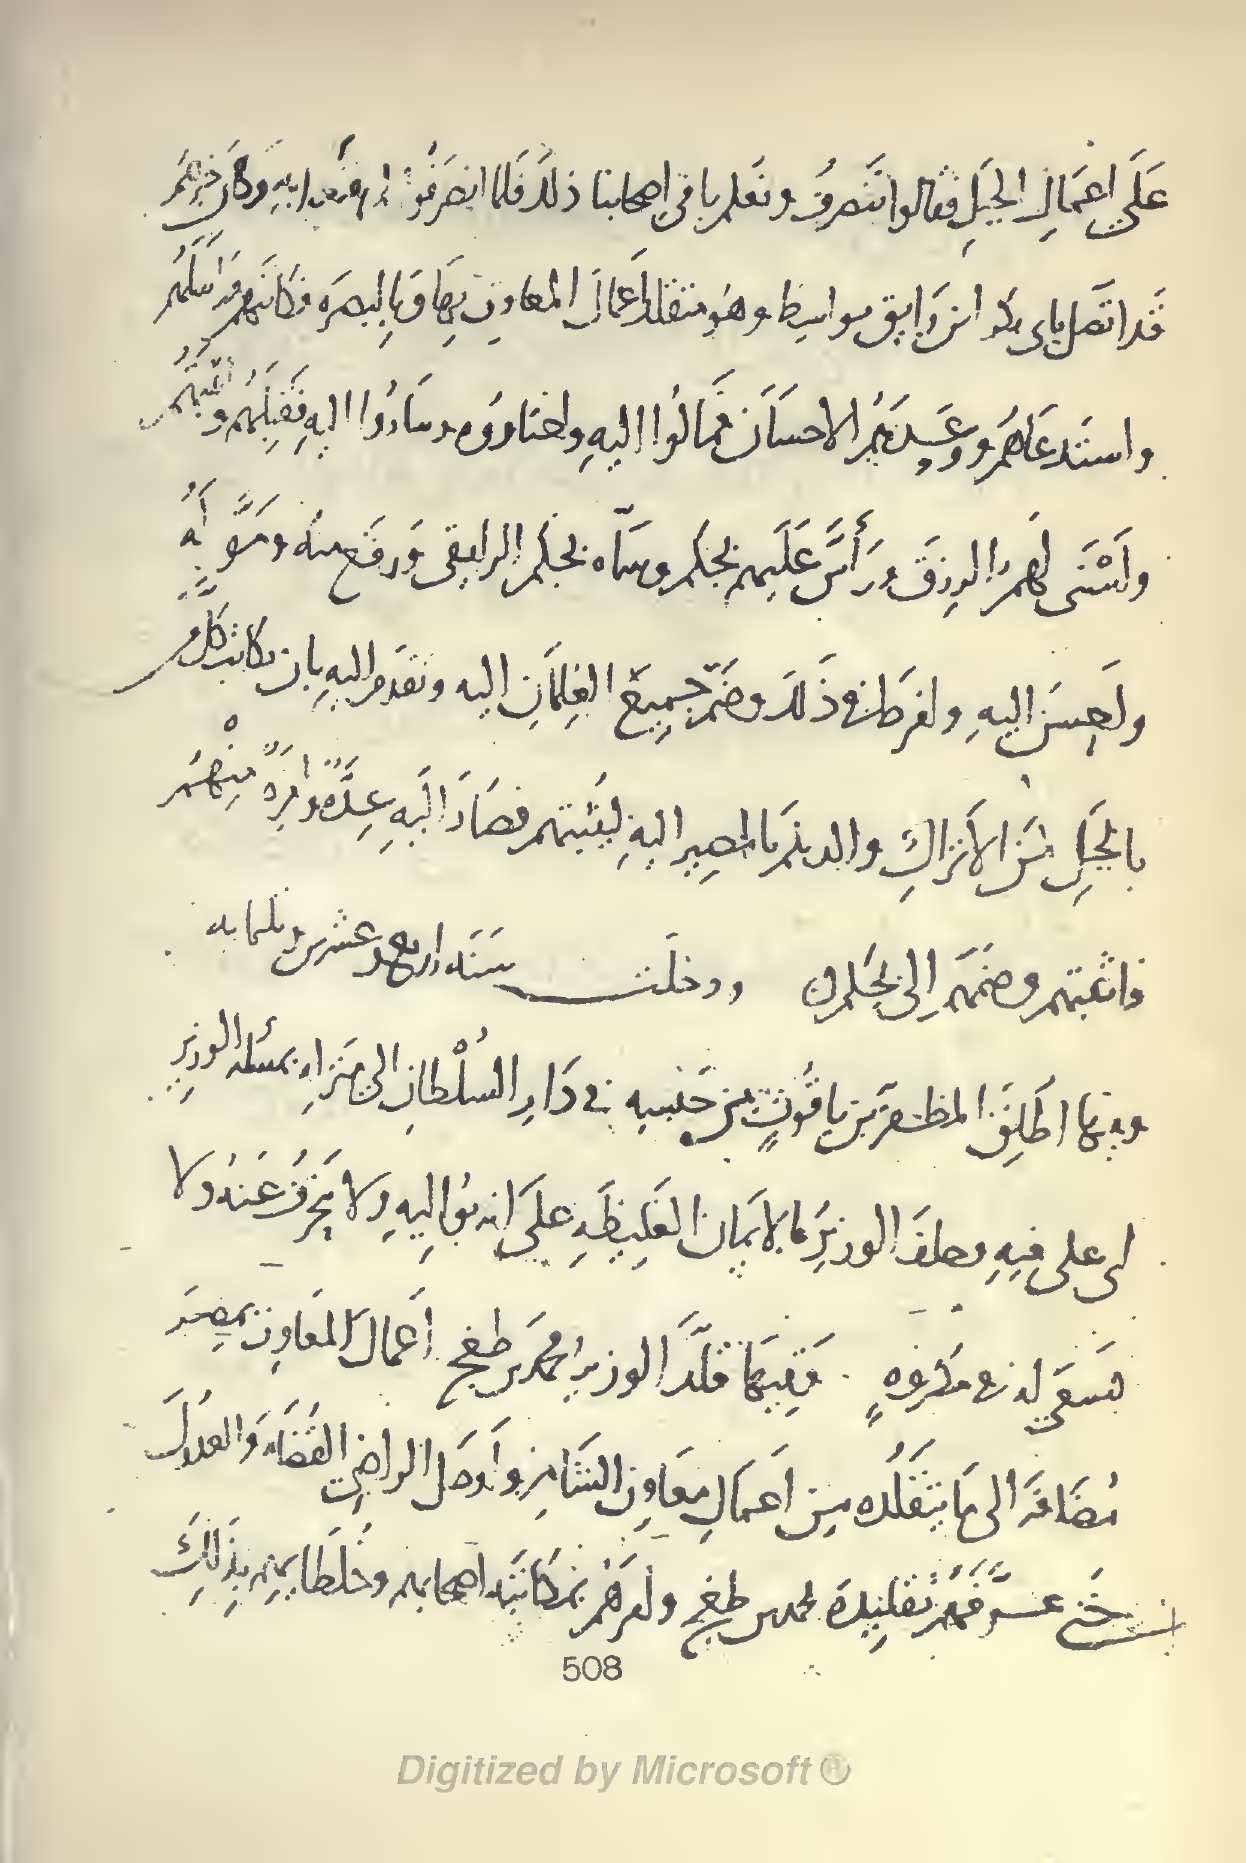 عَلَى اعمَالِ الجَبَلِ فقالوا نَنصرفُ ونعلم باقي اصحابنا ذلك فلما انصرفوا وكان خبرهم
قد اتصل بابى بكر ابن رايق بواسط وهو متقلد اعمالَ المعاون بهَا وَبالبصرَه فكاتبهم
واستدعَاهم ووعدهم الاحسَان فمالُوا اليهِ واختاروه وسَارُوا اليهِ فقبلهُم واثبتهُم
واَسْنَى لهمُ الرزقَ ورَأَّسَ عَلَيهم بجكم وسمّاه بجكم الرايقى وَرفع منه وموَّله
واَحسنَ اليهِ وافرطَ فى ذَلك وضمّ جميعَ الغِلمَانِ اليه وتقدم اليهِ بان يكاتب كل من
بالجَبَلِ منَ الاَترَاكِ والديلم بالمصير اليهِ ليثبتهم فصَارَ اليَهِ عِدَّه وافرَه مِنْهُم
فاثبتهم وضمهم اِلى بجكم ودخلت سَنَه اربع وعشرين وثلثمايه
وفيها اطلِقَ المظفر بن ياقُوتٍ من حَبسِهِ فى دَارِ السُلْطانِ الى منزله بمسئله الوزير
ابى على فيهِ وحلفَ الوزيرُ بالايمان الغَلِيظَهِ عَلَى انه يواليهِ ولا ينحرف عَنهُ ولا
يسَعَى له فى مكروهٍ وَفِيهَا قلّدَ الوزير محمد بن طغج اعمالَ المعَاون بمصرَ
مُضَافَه الى مَا يتقلّده من اَعمَالِ معَاون الشامِ واَوصَل الراضِى القُضَاه وَالعدُولَ
حَتى عَرَّفَهُمْ تقليدَه محمد بن طغج وامرهُمْ بمكاتبه اصحابهم وخُلطَايهم بِذَلِكَ
508
Digitized by Microsoft ®